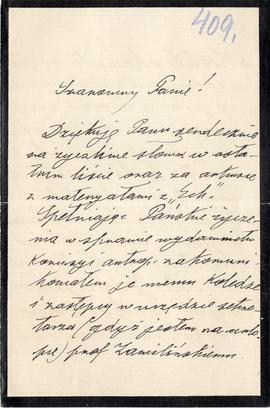 409.
Szanowny Panie!
Dziękuję Panu serdecznie
na życzliwe słowa w osta-
tnim liście oraz za
z materyałami z „Ech".
Spełniając Pańskie życze-
nia w sprawie wydawnictw
Komisyi antrop. zakomuni-
kowałem je memu Koledze
i zastępcy w urzędzie sekre-
tarza (gdyż jestem na urlo-
pie) prof